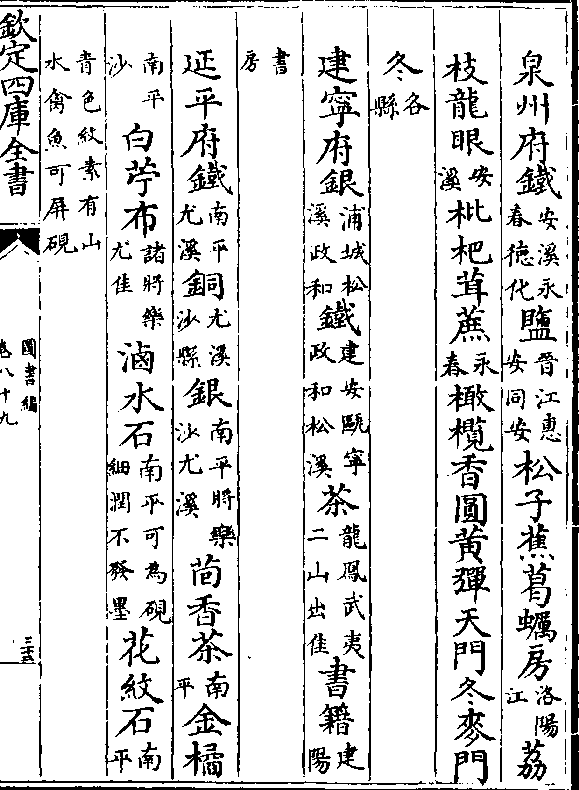 泉州府鐵安溪永春德化鹽晉江惠安同安松子蕉葛蠣房洛陽江荔
枝龍眼安溪枇杷茸蔗永春橄欖香圓黃彈天門冬麥門
冬各縣
建寧府銀浦城松溪政和鐵建安甌寧政和松溪茶龍鳳武夷二山出佳書籍建陽
書房
延平府鐵南平尤溪銅尤溪沙縣銀南平將樂沙尤溪茴香茶南平金橘
南平沙白苧布諸將樂尤佳滷水石南平可為硯細潤不發墨花紋石南平
青色紋素有山水禽魚可屏硯
欽定四庫全書
圖書編
卷八十九
三十五